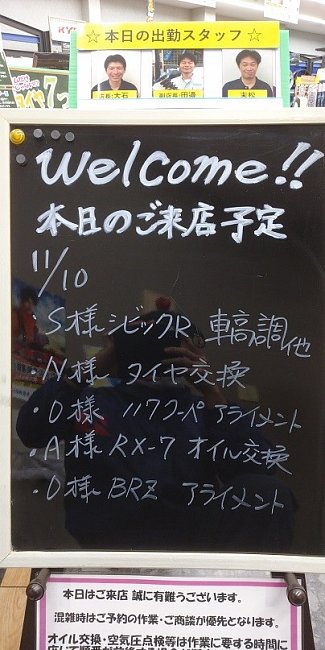 ☆本日の出勤スタッフ☆
店長:大石
副店長:田邉
末松
Welcome!!
本日のご来店予定
11/10
・S様 シビックR 車高調他
・N様 タイヤ交換
・O様 117クーペ アライメント
・A様 RX-7 オイル交換
・O様 BRZ アライメント
本日はご来店 誠に有難うございます。
混雑時はご予約の作業・ご商談が優先となります。
オイル交換・空気圧点検等は作業に要する時間に